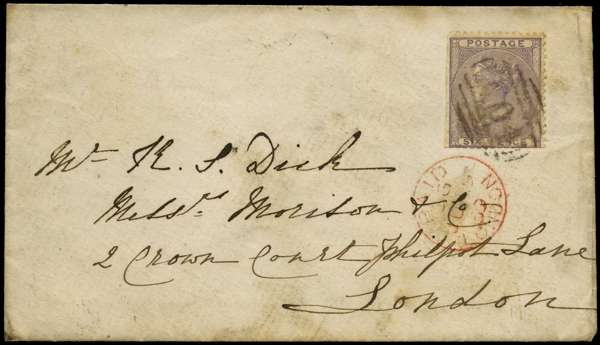 POSTAGE
SIX
Mr. R. S. Dick
Messrs. Morison & Co
2 Crown Court Philpot Lane
London
LONDON
PAID